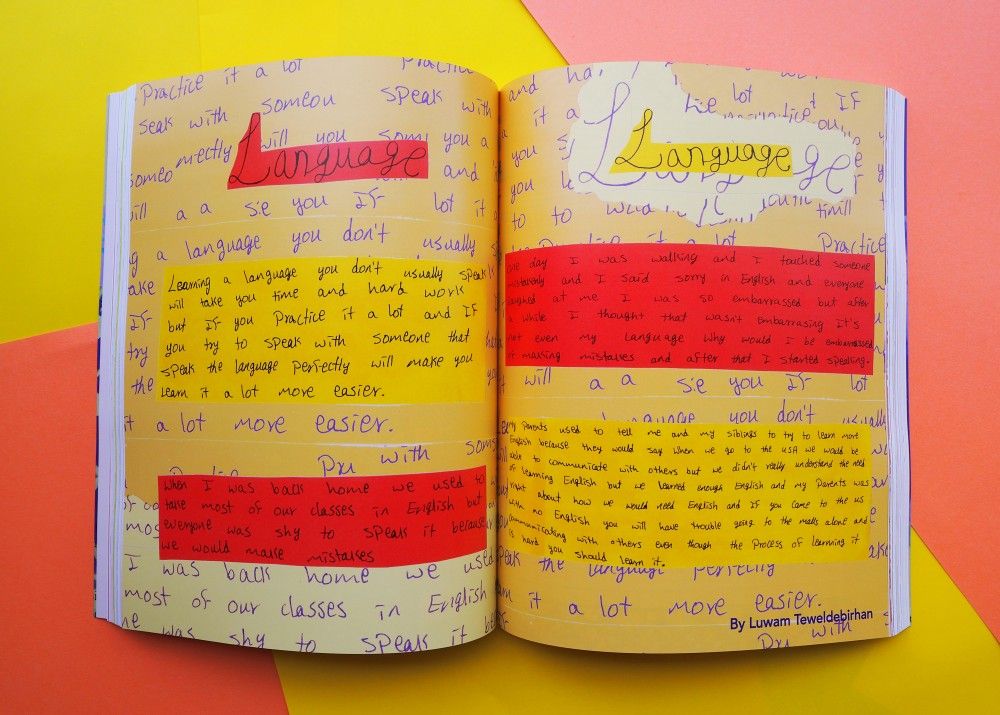 Practice it a lot
Practice
seak with someou speak with
someo nnectly will you som you a
Language
and
will a a sie you IF lot it a
g a language you don't usually
Learning a language you don't usually speak
will take you time and hard work
but IF you Practice it a lot and IF
you try to speak with someone that
speak the language perfectly will make you
learn it a lot more easier.
a lot more easier.
with
When I was back home we used to
take most of our classes in English but
everyone was shy to speak it because
we would make mistakes
I was back home we used
most of our classes in English
was shy to speak it be
and
it a
you
lot
IF
Language
ge
to to
it a lot
Practice
one day I was walking and I touched someone
mistakenly and I said sorry in English and everyone
laughed at me I was so embarrassed but after
a while I thought that wasn't embarrasing it's
not even my language Why would I be embarrassed
of making mistakes and after that I started speaking.
will a a sie you IF lot
language you don't usually
My Parents used to tell me and my siblings to try to learn more
English because they would say When we go to the USA we would be
able to communicate with others but we didn't really understand the need
of learning English but we learned enough English and my Parents was
right about how we would need English and if you came to the us
with no English you will have trouble going to the malls alone and
communicating with others even though the Process of learning it
is hard you should learn it.
the language perfectly
it a lot more easier.
By Luwam Teweldebirhan
with